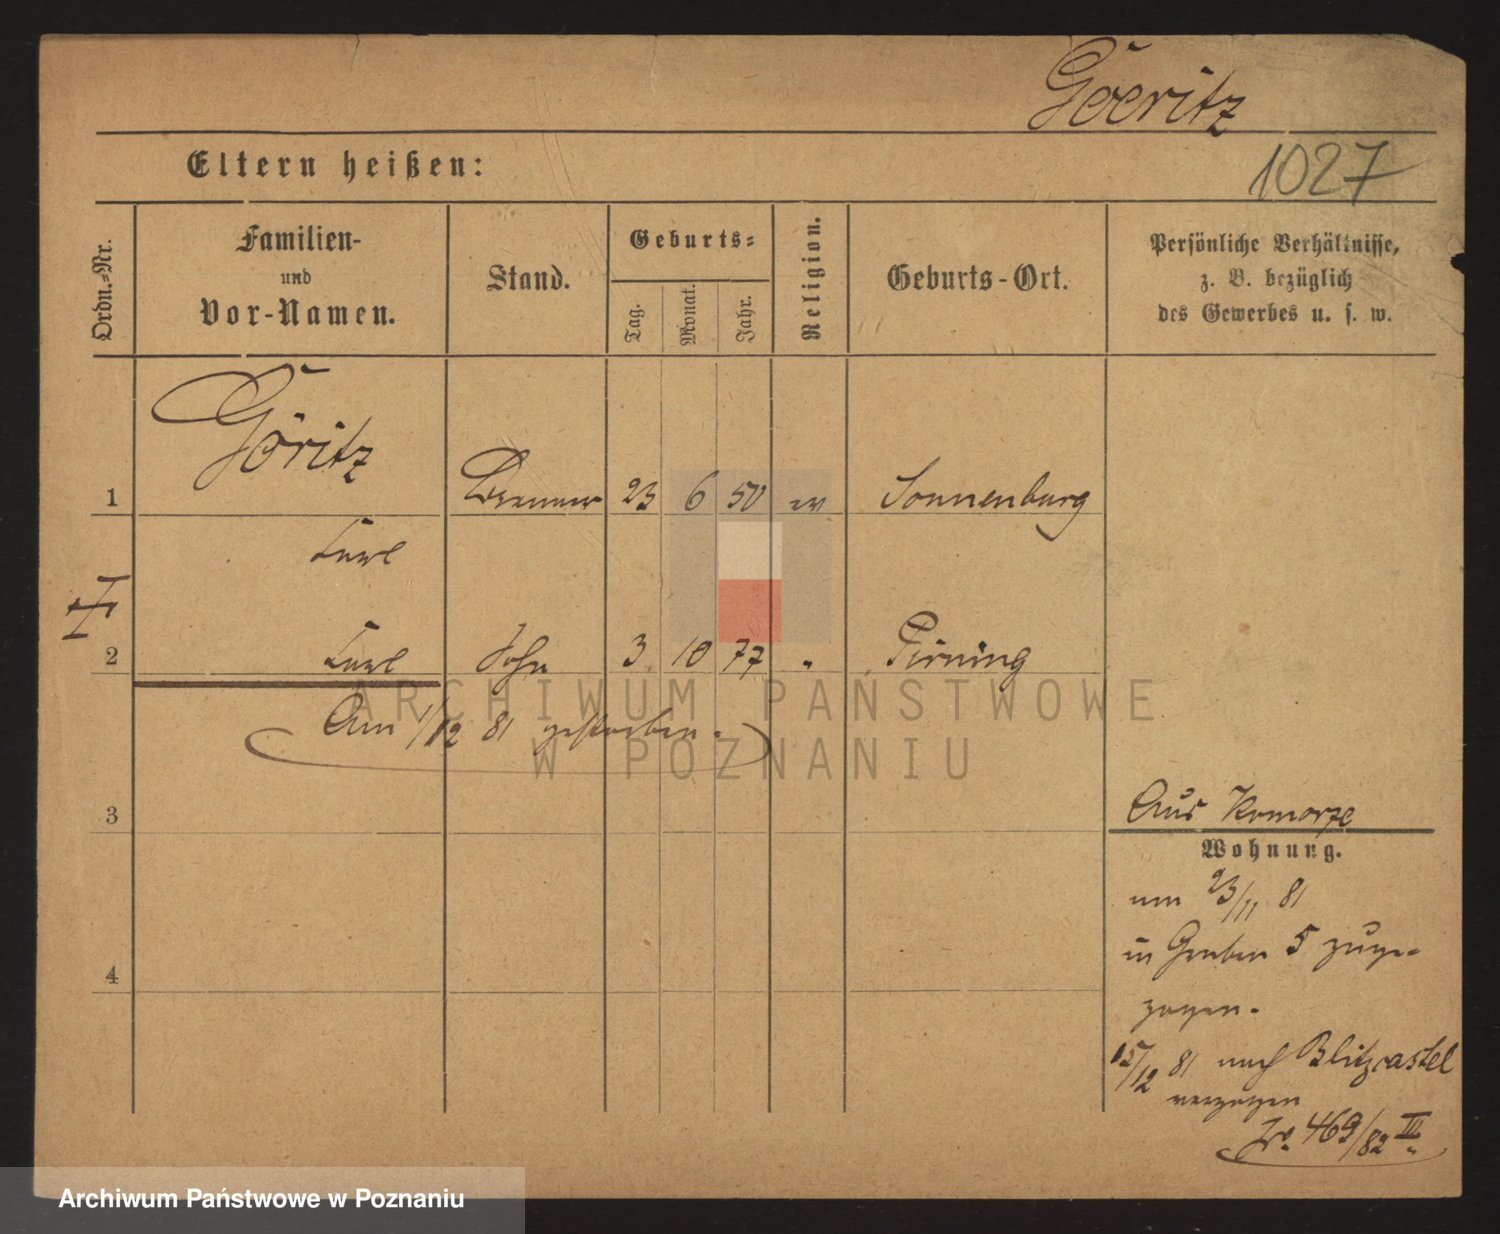 Goeritz
Eltern heißen:
1027
Ordn.-Nr.
Familien-
und
Vor-Namen.
Stand.
Geburts-
Tag.
Monat.
Jahr.
Religion.
Geburts-Ort.
Persönliche Verhältnisse,
z. B. bezüglich
des Gewerbes u. s. w.
Göritz
1 Brenner 23 6 50 ev Sonnenburg
Carl
2 Carl Sohn 3 10 77 " Pirning
Am 1/12 81 gestorben.
ARCHIWUM PAŃSTWOWE
W POZNANIU
3
Aus Komorze
Wohnung.
am 23/11 81
in Graben 5 zuge-
zogen.
4
15/12 81 nach Blitzcastel
verzogen
469/82 III
Archiwum Państwowe w Poznaniu